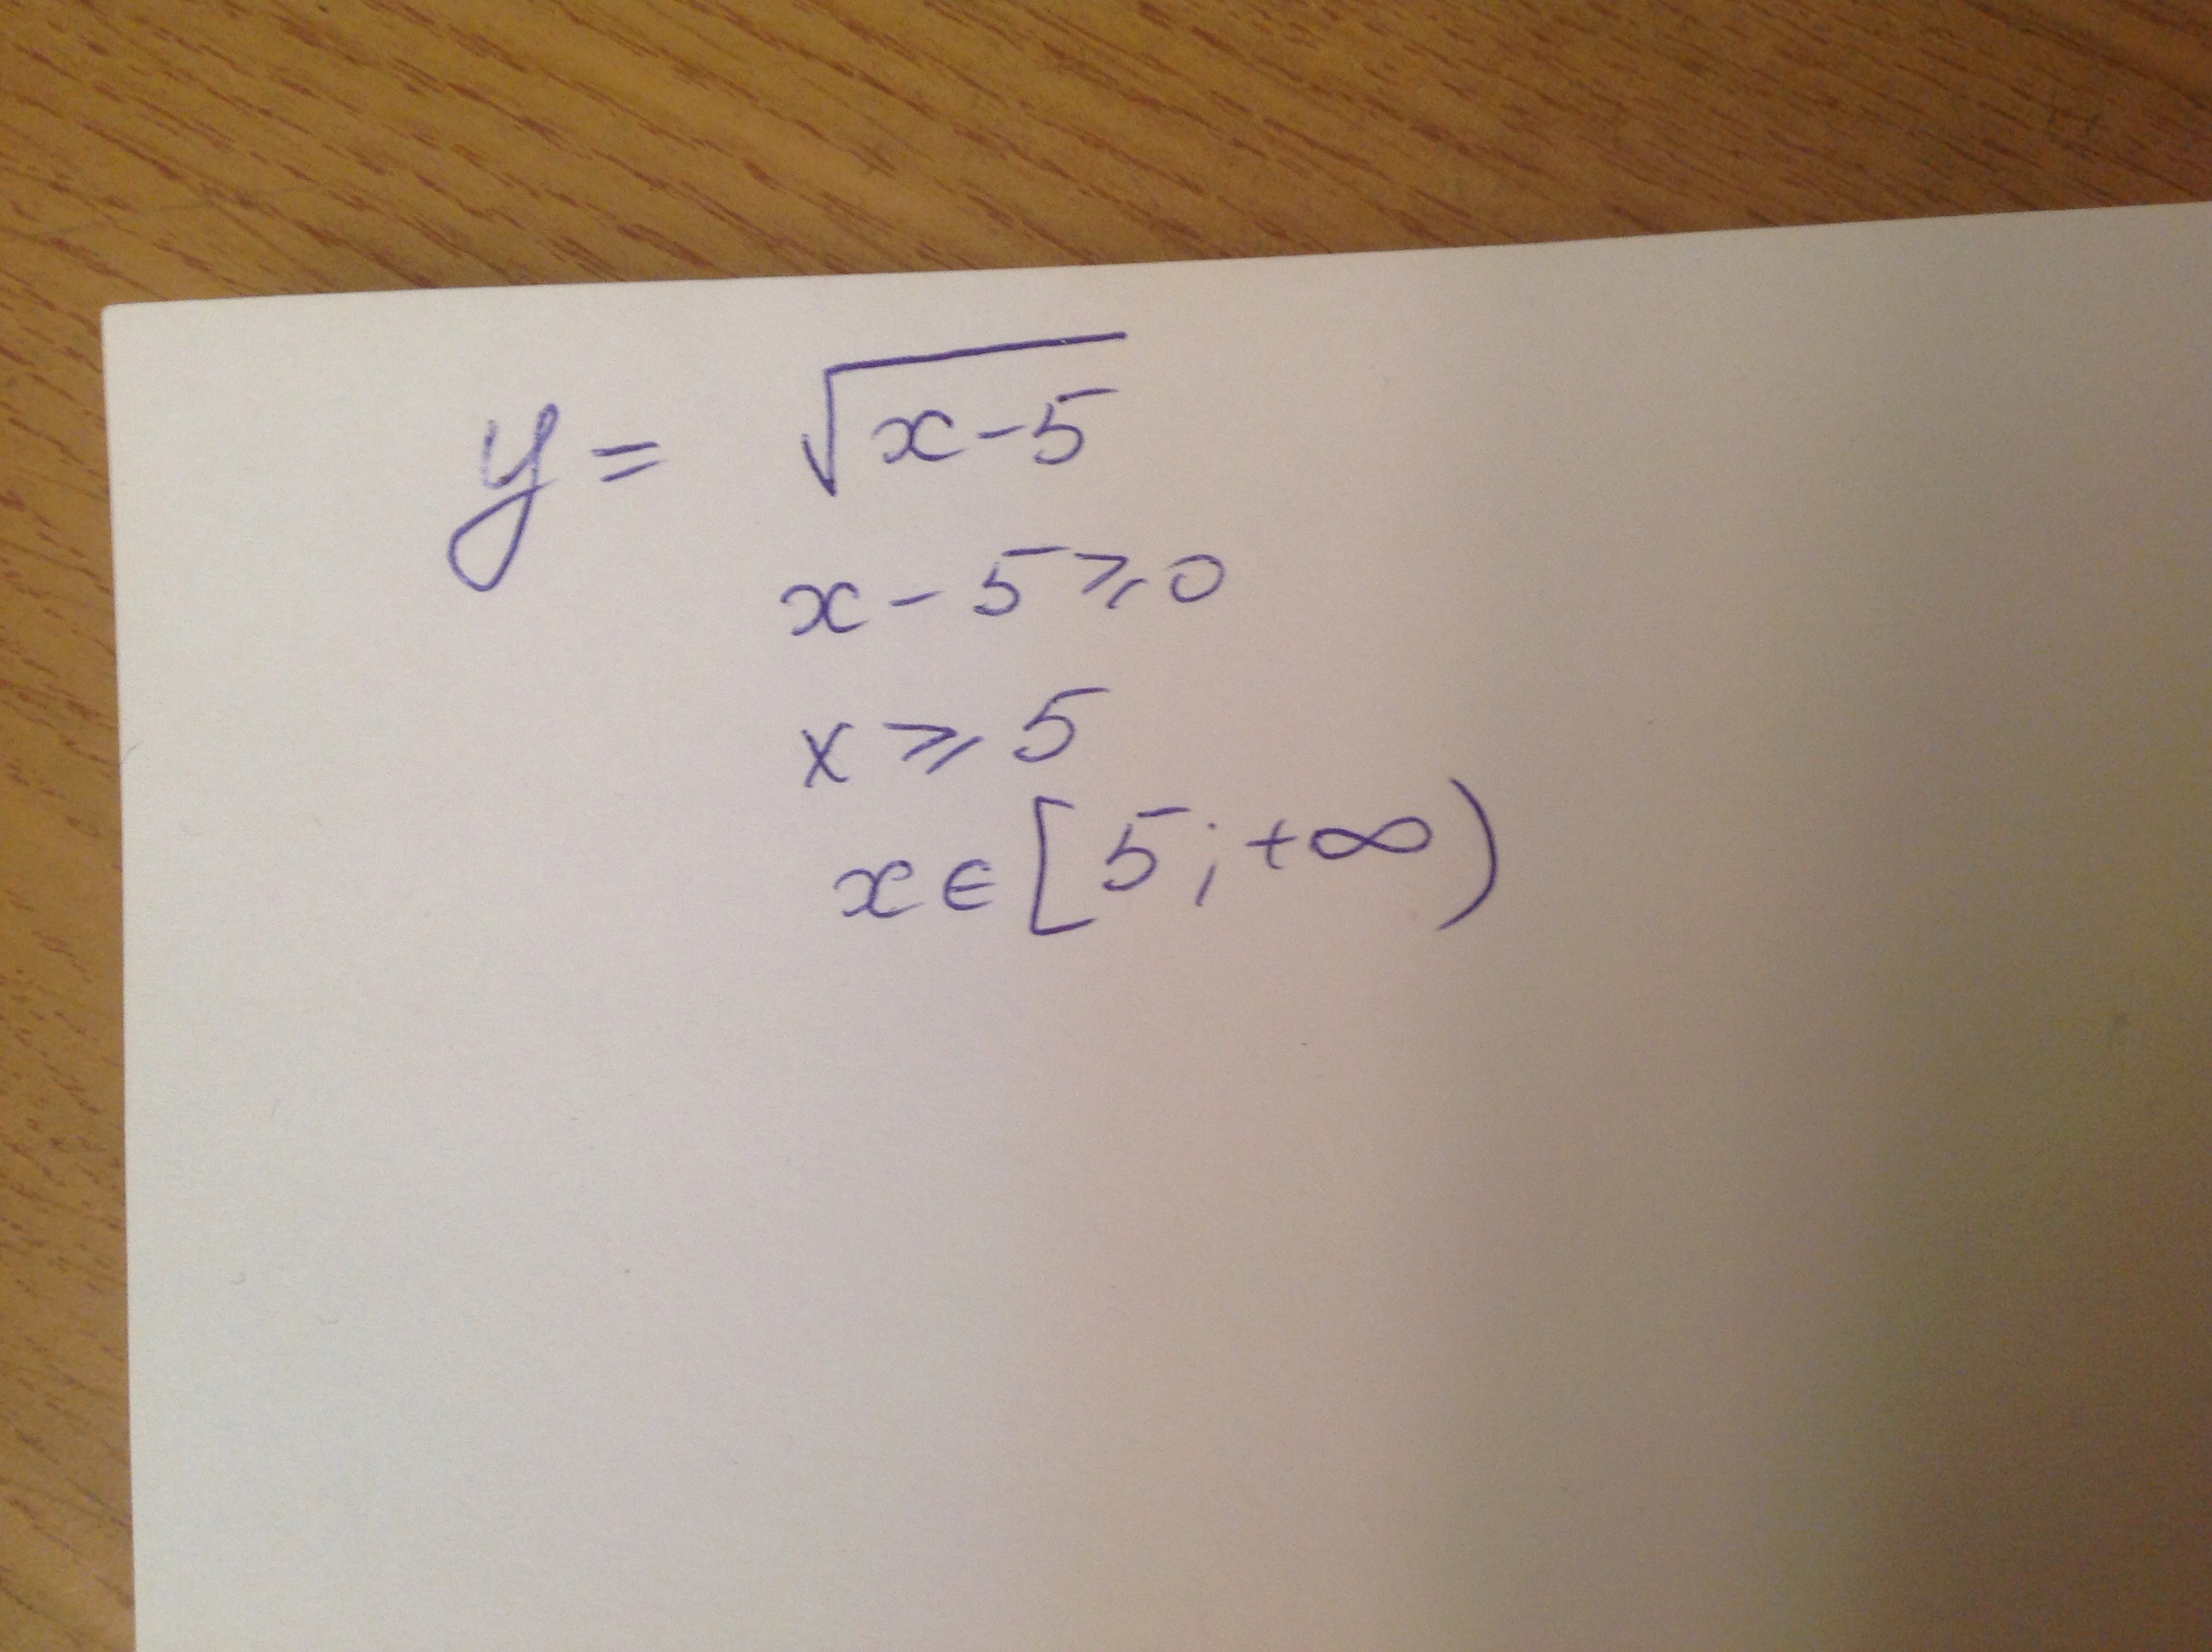 y = √x-5
x - 5 ⩾ 0
x ⩾ 5
x ∈ [5; +∞)